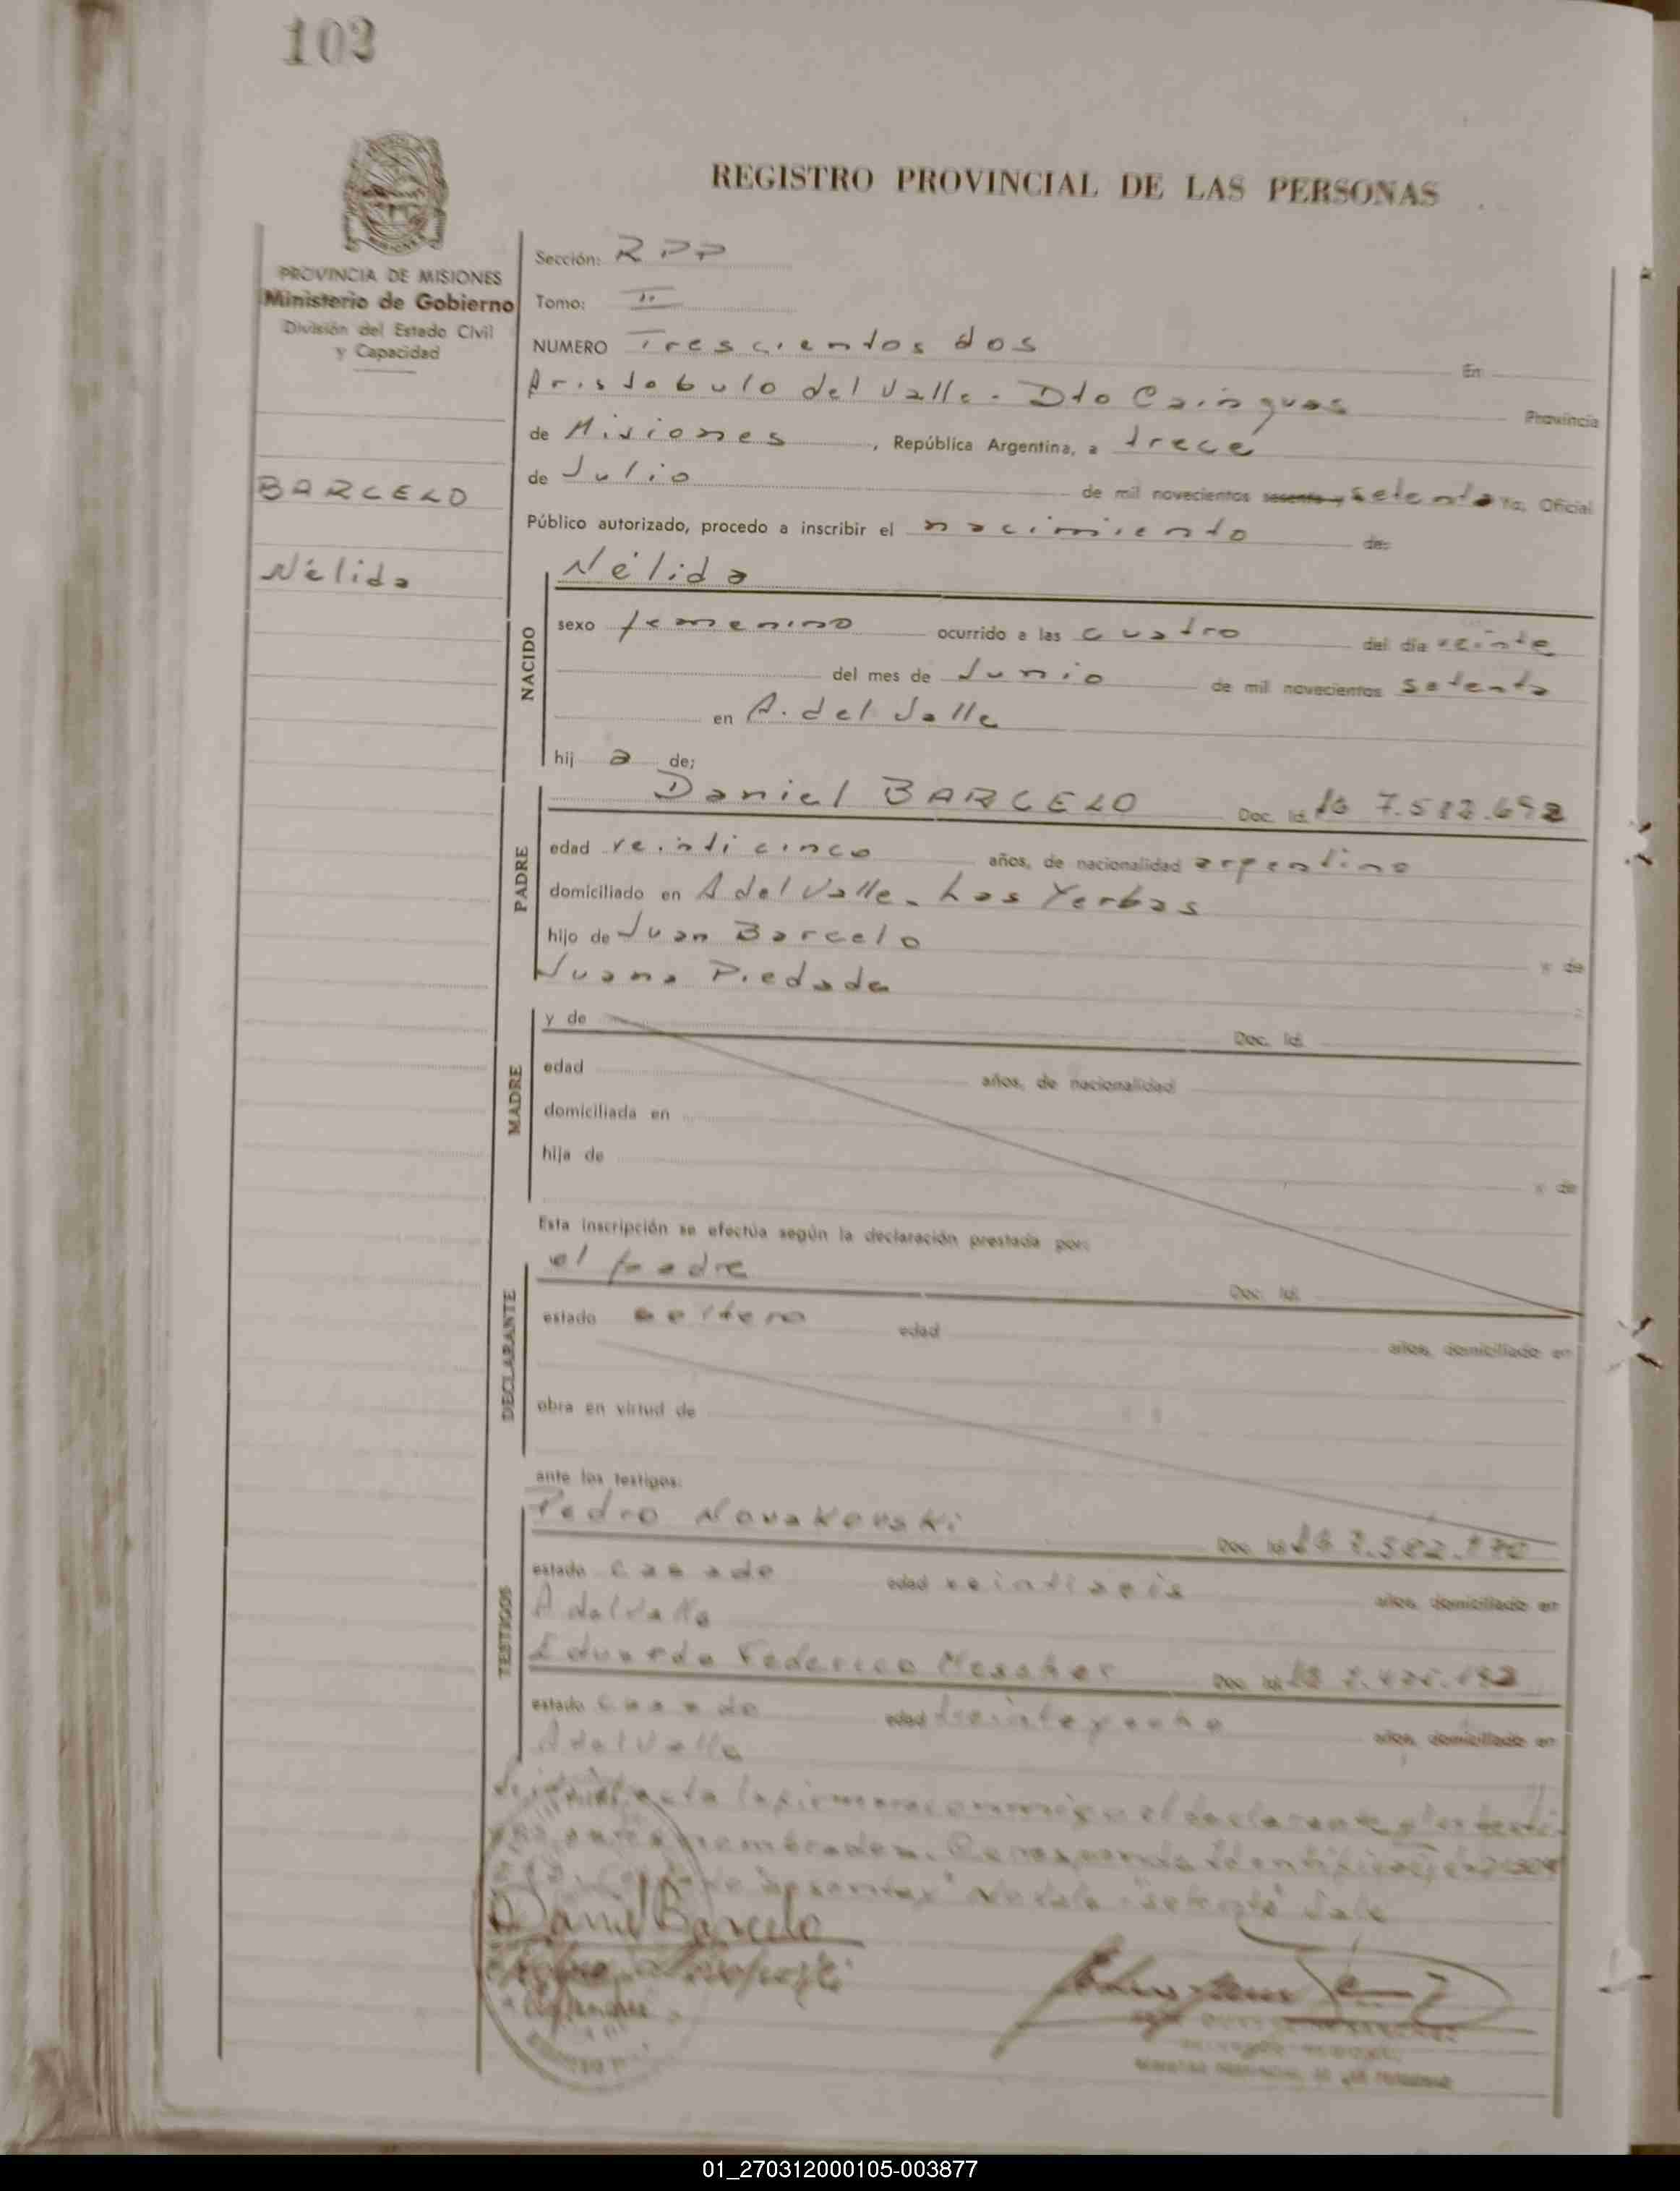 102
REGISTRO PROVINCIAL DE LAS PERSONAS
PROVINCIA DE MISIONES
Ministerio de Gobierno
División del Estado Civil
y Capacidad
BARCELO
Nélida
Sección: RPP
Tomo: II
NUMERO Trescientos dos En
Aristobulo del Valle - Dto Cainguas Provincia
de Misiones, República Argentina, a trece
de Julio de mil novecientos sesenta y setenta Yo, Oficial
Público autorizado, procedo a inscribir el nacimiento de:
NACIDO
Nélida
sexo femenino ocurrido a las cuatro del día veinte
del mes de Junio de mil novecientos setenta
en A. del Valle
hij a de;
PADRE
Daniel BARCELO Doc. Id.
edad veinticinco años, de nacionalidad argentino
domiciliado en A del Valle - Las Yerbas
hijo de Juan Barcelo y de
Juana Piedade
MADRE
y de Doc. Id.
edad años, de nacionalidad
domiciliada en
hija de y de
Esta inscripción se efectúa según la declaración prestada por:
DECLARANTE
el padre Doc. Id.
estado soltero edad años, domiciliado en
obra en virtud de
ante los testigos:
TESTIGOS
Pedro Novakovski Doc. Id.
estado casado edad veintiseis años, domiciliado en
A del Valle
Eduardo Federico Doc. Id.
estado casado edad treinta y ocho años, domiciliado en
A del Valle
Leida el acta la firman conmigo el declarante y los testi-
gos antes nombrados.
"setenta" Vale
Daniel Barcelo
01_270312000105-003877